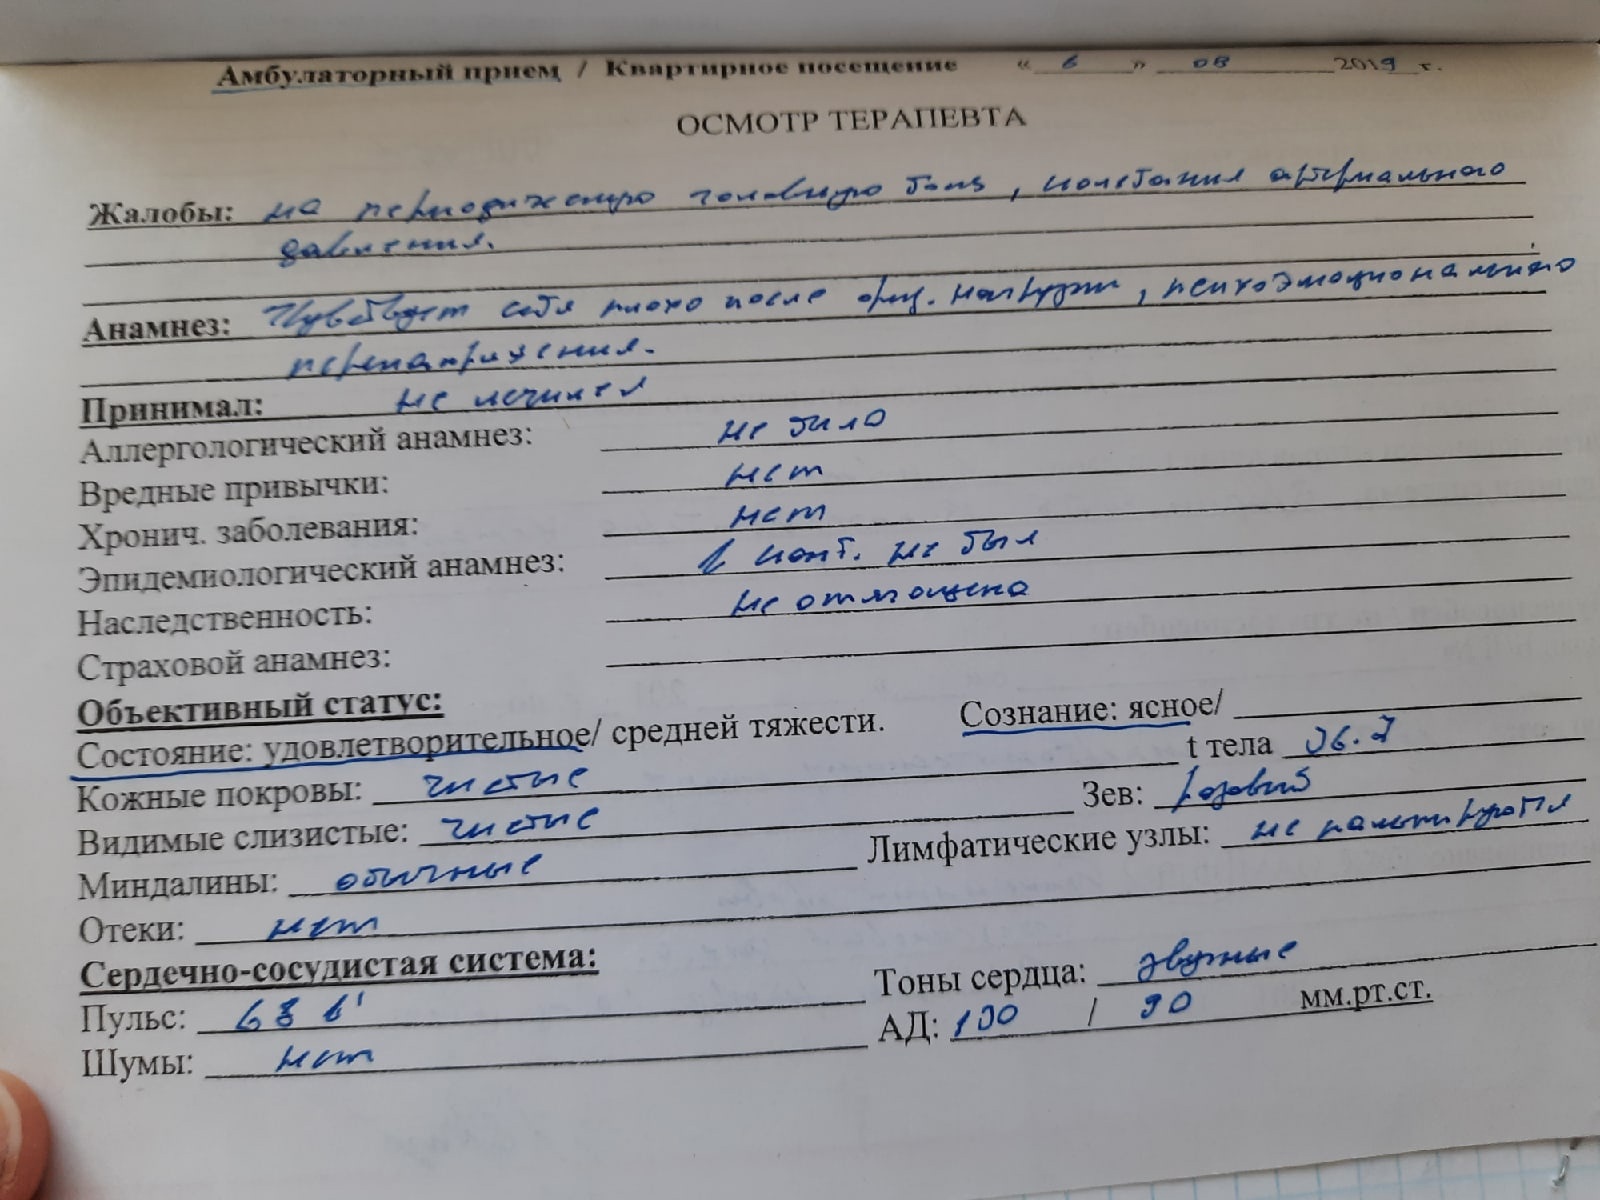 Амбулаторный прием / Квартирное посещение « 6 » 08 2019 г.
ОСМОТР ТЕРАПЕВТА
Жалобы: на периодическую головную боль, колебания артериального
давления.
Анамнез: Чувствует себя плохо после физ. нагрузки, психоэмоционального
перенапряжения.
Принимал: не лечился
Аллергологический анамнез: не было
Вредные привычки: нет
Хронич. заболевания: нет
Эпидемиологический анамнез: в конт. не был
Наследственность: не отягощена
Страховой анамнез:
Объективный статус:
Состояние: удовлетворительное/ средней тяжести. Сознание: ясное/
Кожные покровы: чистые t тела 36.7
Видимые слизистые: чистые Зев: розовый
Миндалины: обычные Лимфатические узлы: не пальпируются
Отеки: нет
Сердечно-сосудистая система:
Пульс: 68 в' Тоны сердца: звучные
Шумы: нет АД: / 90 мм.рт.ст.